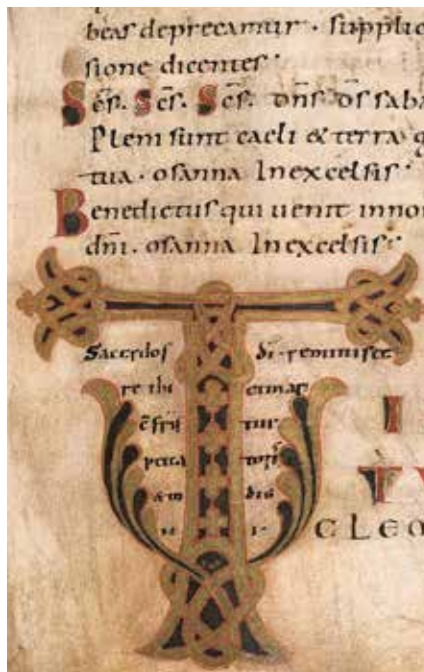 beas deprecamur · supplic
sione dicentes·
Sc̄s. Sc̄s. Sc̄s. dn̄s d̄s saba
Pleni sunt caeli & terra g
tua · osanna In excelsis·
Benedictus qui uenit in no
dn̄i. osanna In excelsis·
T
Sacerdos d̄i · reminisce
re thi etmar
pecca toris
& in dig
ni ·
I
CLEO